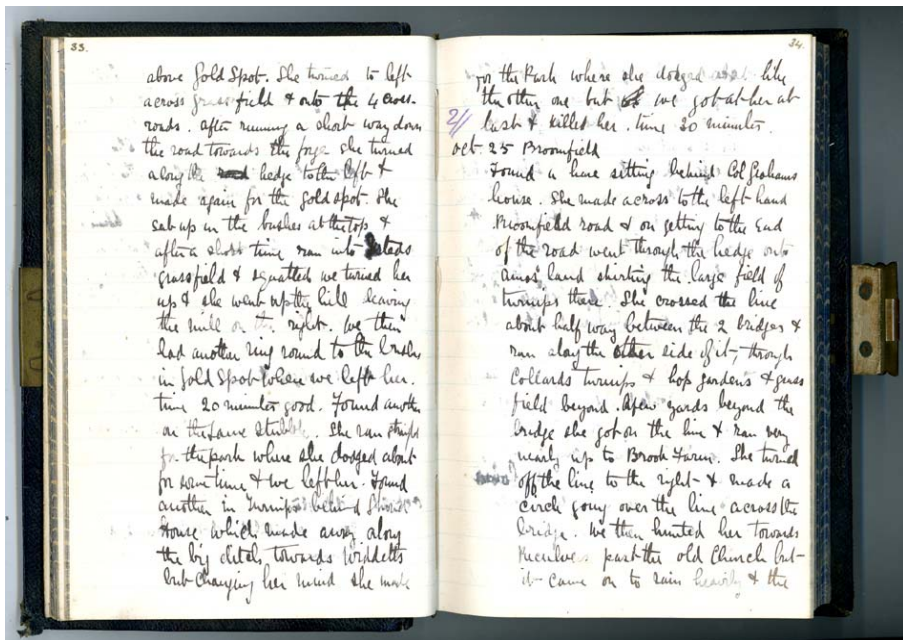 33.
above Gold Spot. She turned to left
across grass field & onto the 4 cross-
roads. After running a short way down
the road towards the forge she turned
along the hedge to the left &
made again for the Gold Spot. She
sat up in the bushes at the top &
after a short time ran into
grass field & squatted we turned her
up & she went up the hill leaving
the mill on the right. We then
had another ring round to the bushes
in Gold Spot where we left her.
time 20 minutes good. Found another
on the same stubble. She ran straight
for the park where she dodged about
for some time & we left her. Found
another in Turnips behind
House which made away along
the big ditch towards
but changing her mind she made
34.
for the Park where she dodged about like
the other one but we got at her at
last & killed her. time 30 minutes.
2/
Oct 25 Broomfield
Found a hare sitting behind Col Grahams
house. She made across to the left hand
Broomfield road & on getting to the end
of the road went through the hedge onto
land skirting the large field of
turnips there. She crossed the line
about half way between the 2 bridges &
ran along the other side of it, through
Collards turnips & hop gardens & grass
field beyond. A few yards beyond the
bridge she got on the line & ran very
nearly up to Brook Farm. She turned
off the line to the right & made a
circle going over the line across the
bridge. We then hunted her towards
past the old Church but
it came on to rain heavily & the